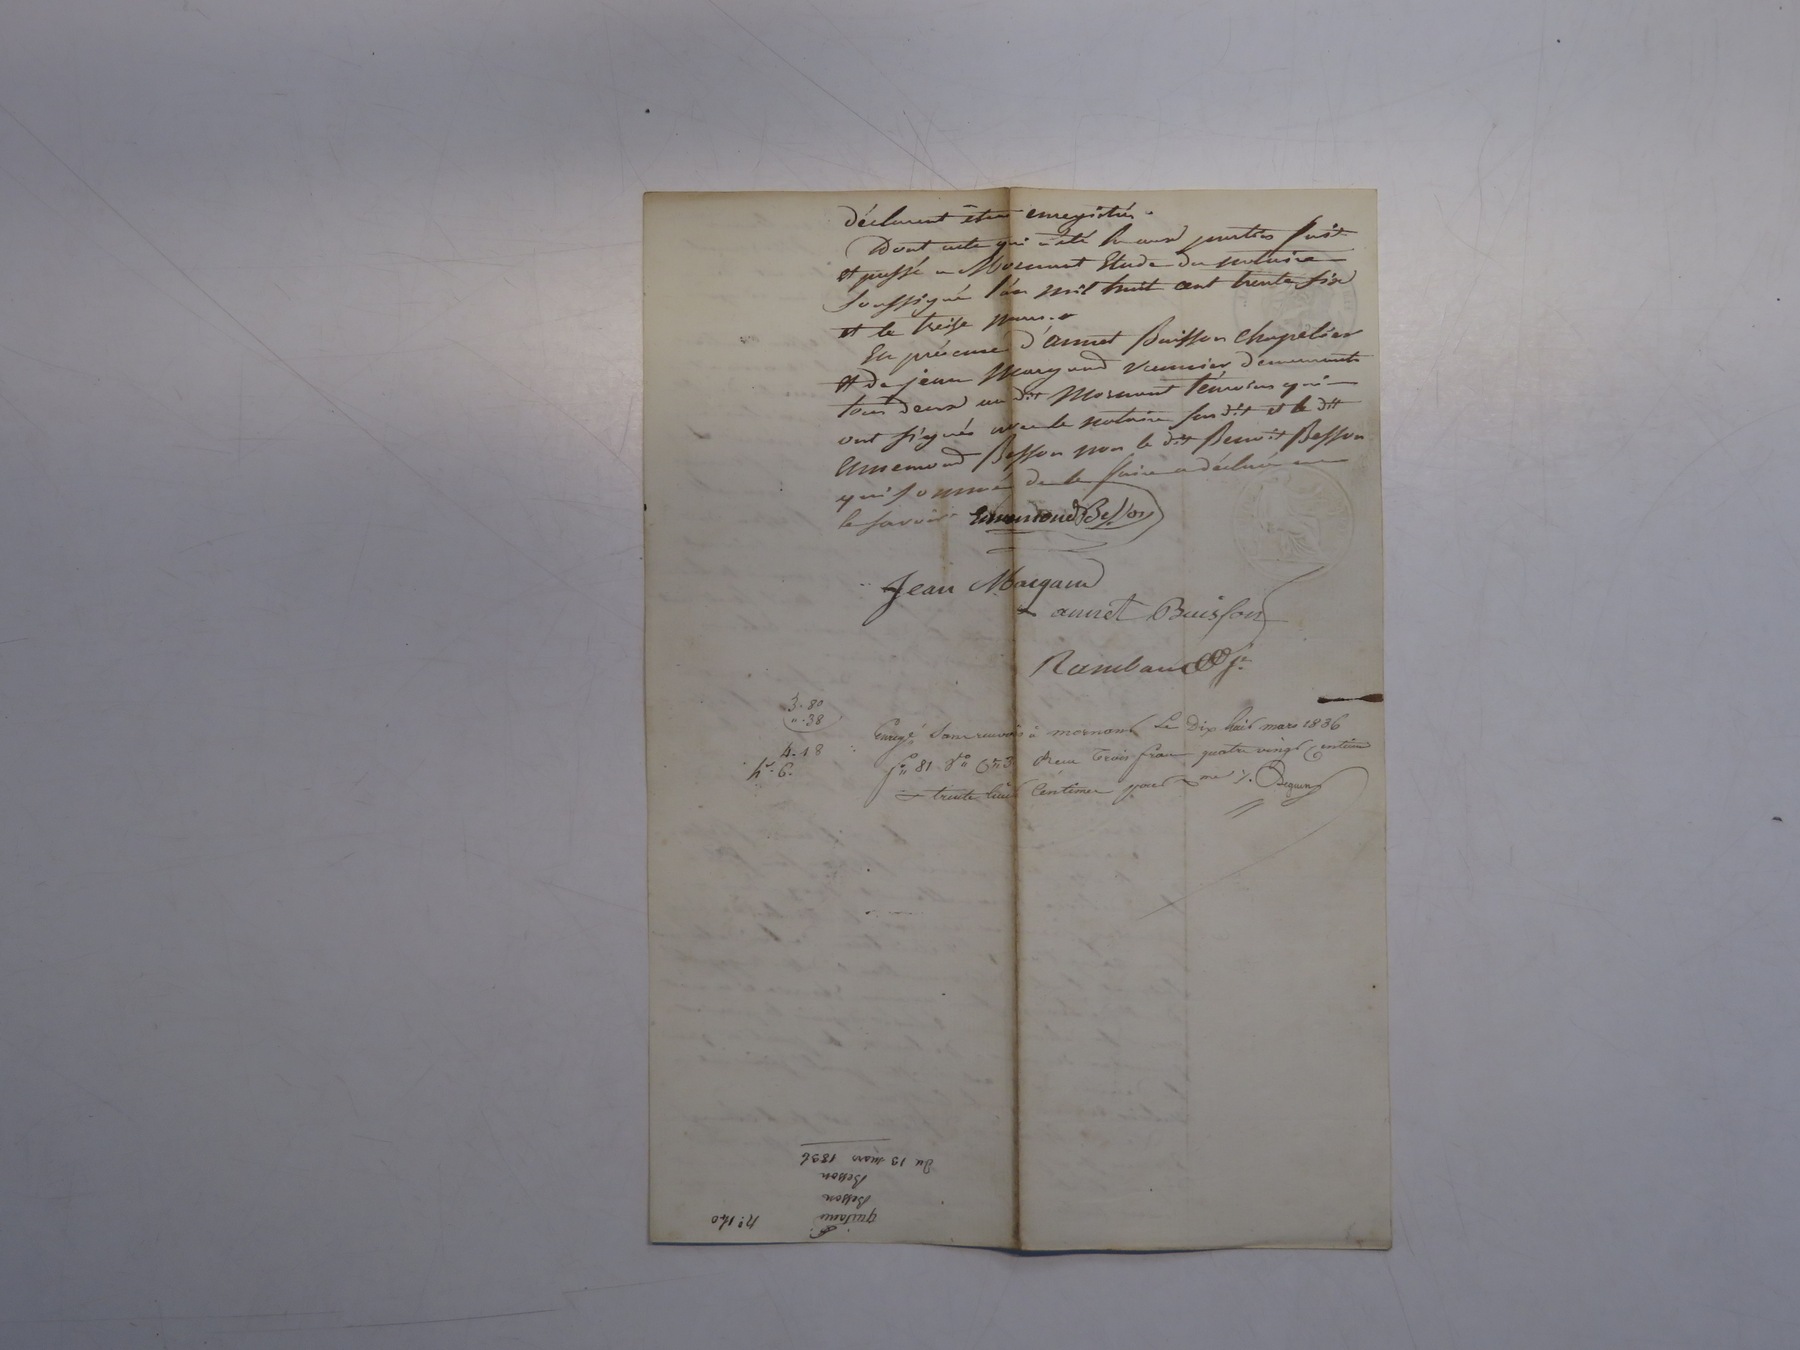 déclarent être enregistrés.
Dont acte qui a été lu aux parties fait
et passé a Mornant Etude du notaire
soussigné l'an mil huit cent trente six
et le treize mars.
En présence d'annet Buisson chapelier
et de jean Margand vannier demeurants
tous deux au dit Mornant témoins qui
ont signés avec le notaire susdit et le dit
Ennemond Besson non le dit Benoit Besson
qui sommé de le faire a déclaré ne
le savoir Ennemond Besson
Jean Margand
annet Buisson
Rambaud Jne
3.80
".38
4.18
hre. 6.
Enregé sans renvoi à mornant Le Dix huit mars 1836
fo 81 Vo Ce 3 Reçu Trois francs quatre vingt Centimes
trente huit Centimes pour Beguin
Du 13 mars 1836
Besson
Besson
quittance
No. 140